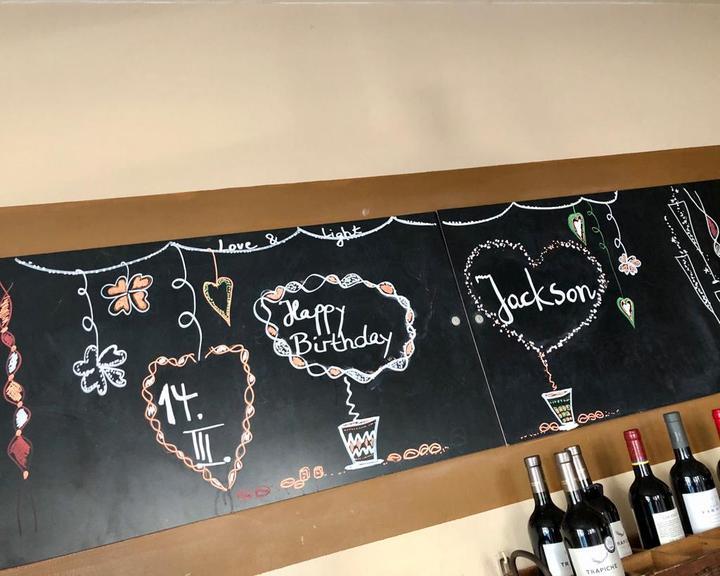 Love & Light
14.
III.
Happy
Birthday
Jackson
TRAPICHE